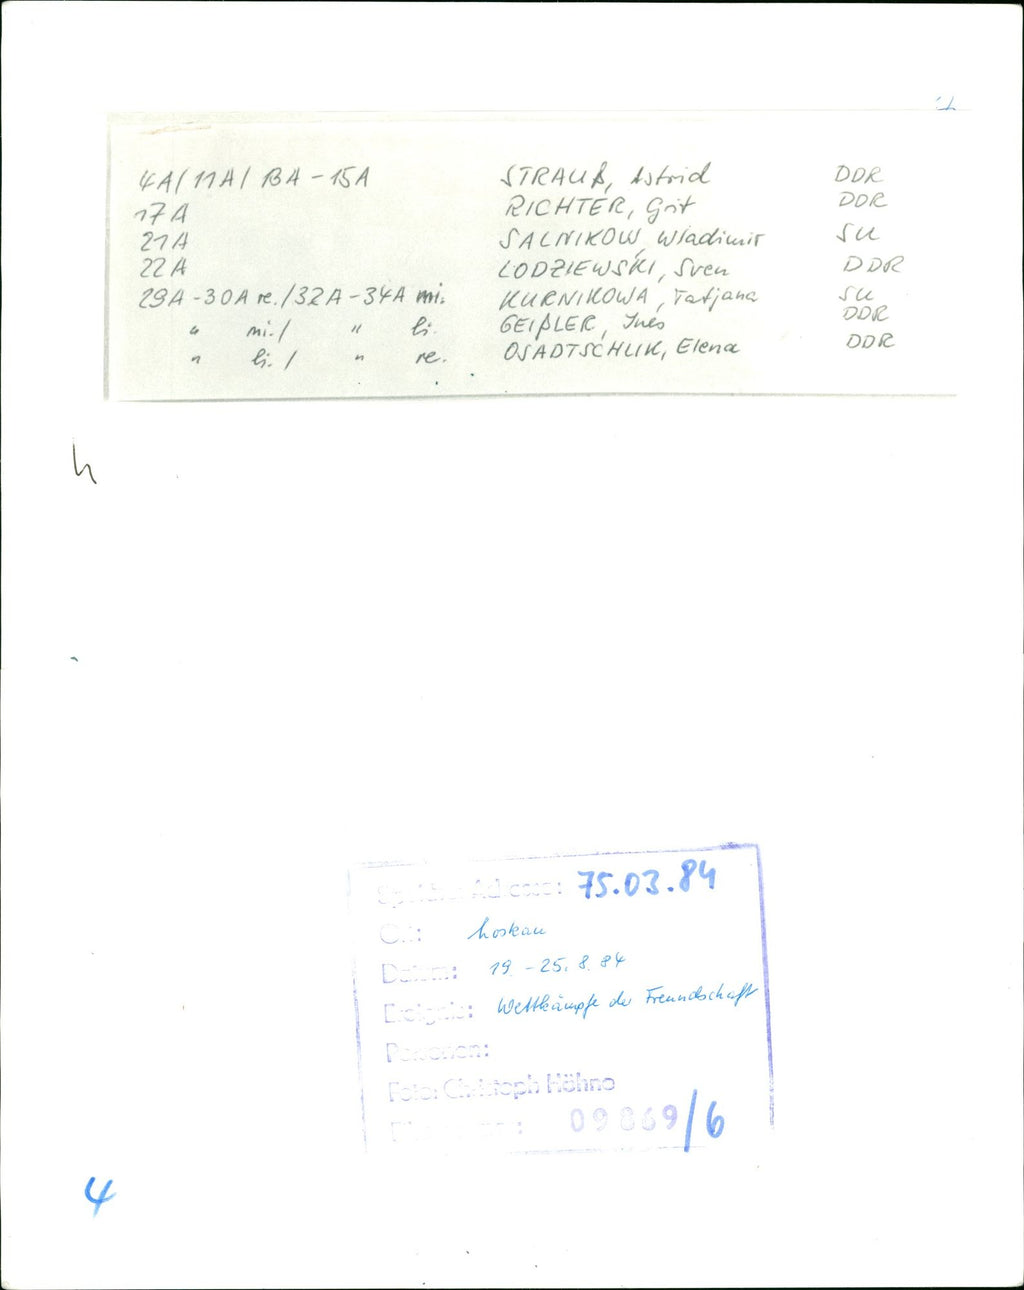 4A/11A/13A-15A STRAUß, Astrid DDR
17A RICHTER, Grit DDR
21A SALNIKOW, Wladimir SU
22A LODZIEWSKI, Sven DDR
29A-30A re./32A-34A mi. KURNIKOWA, Tatjana SU
" mi./ " li. GEIßLER, Ines DDR
" li./ " re. OSADTSCHUK, Elena DDR
h
Adresse: 75.03.84
Ort: Moskau
Datum: 19.-25.8.84
Ereignis: Wettkämpfe der Freundschaft
Personen:
Foto: Christoph Höhne
09869/6
4